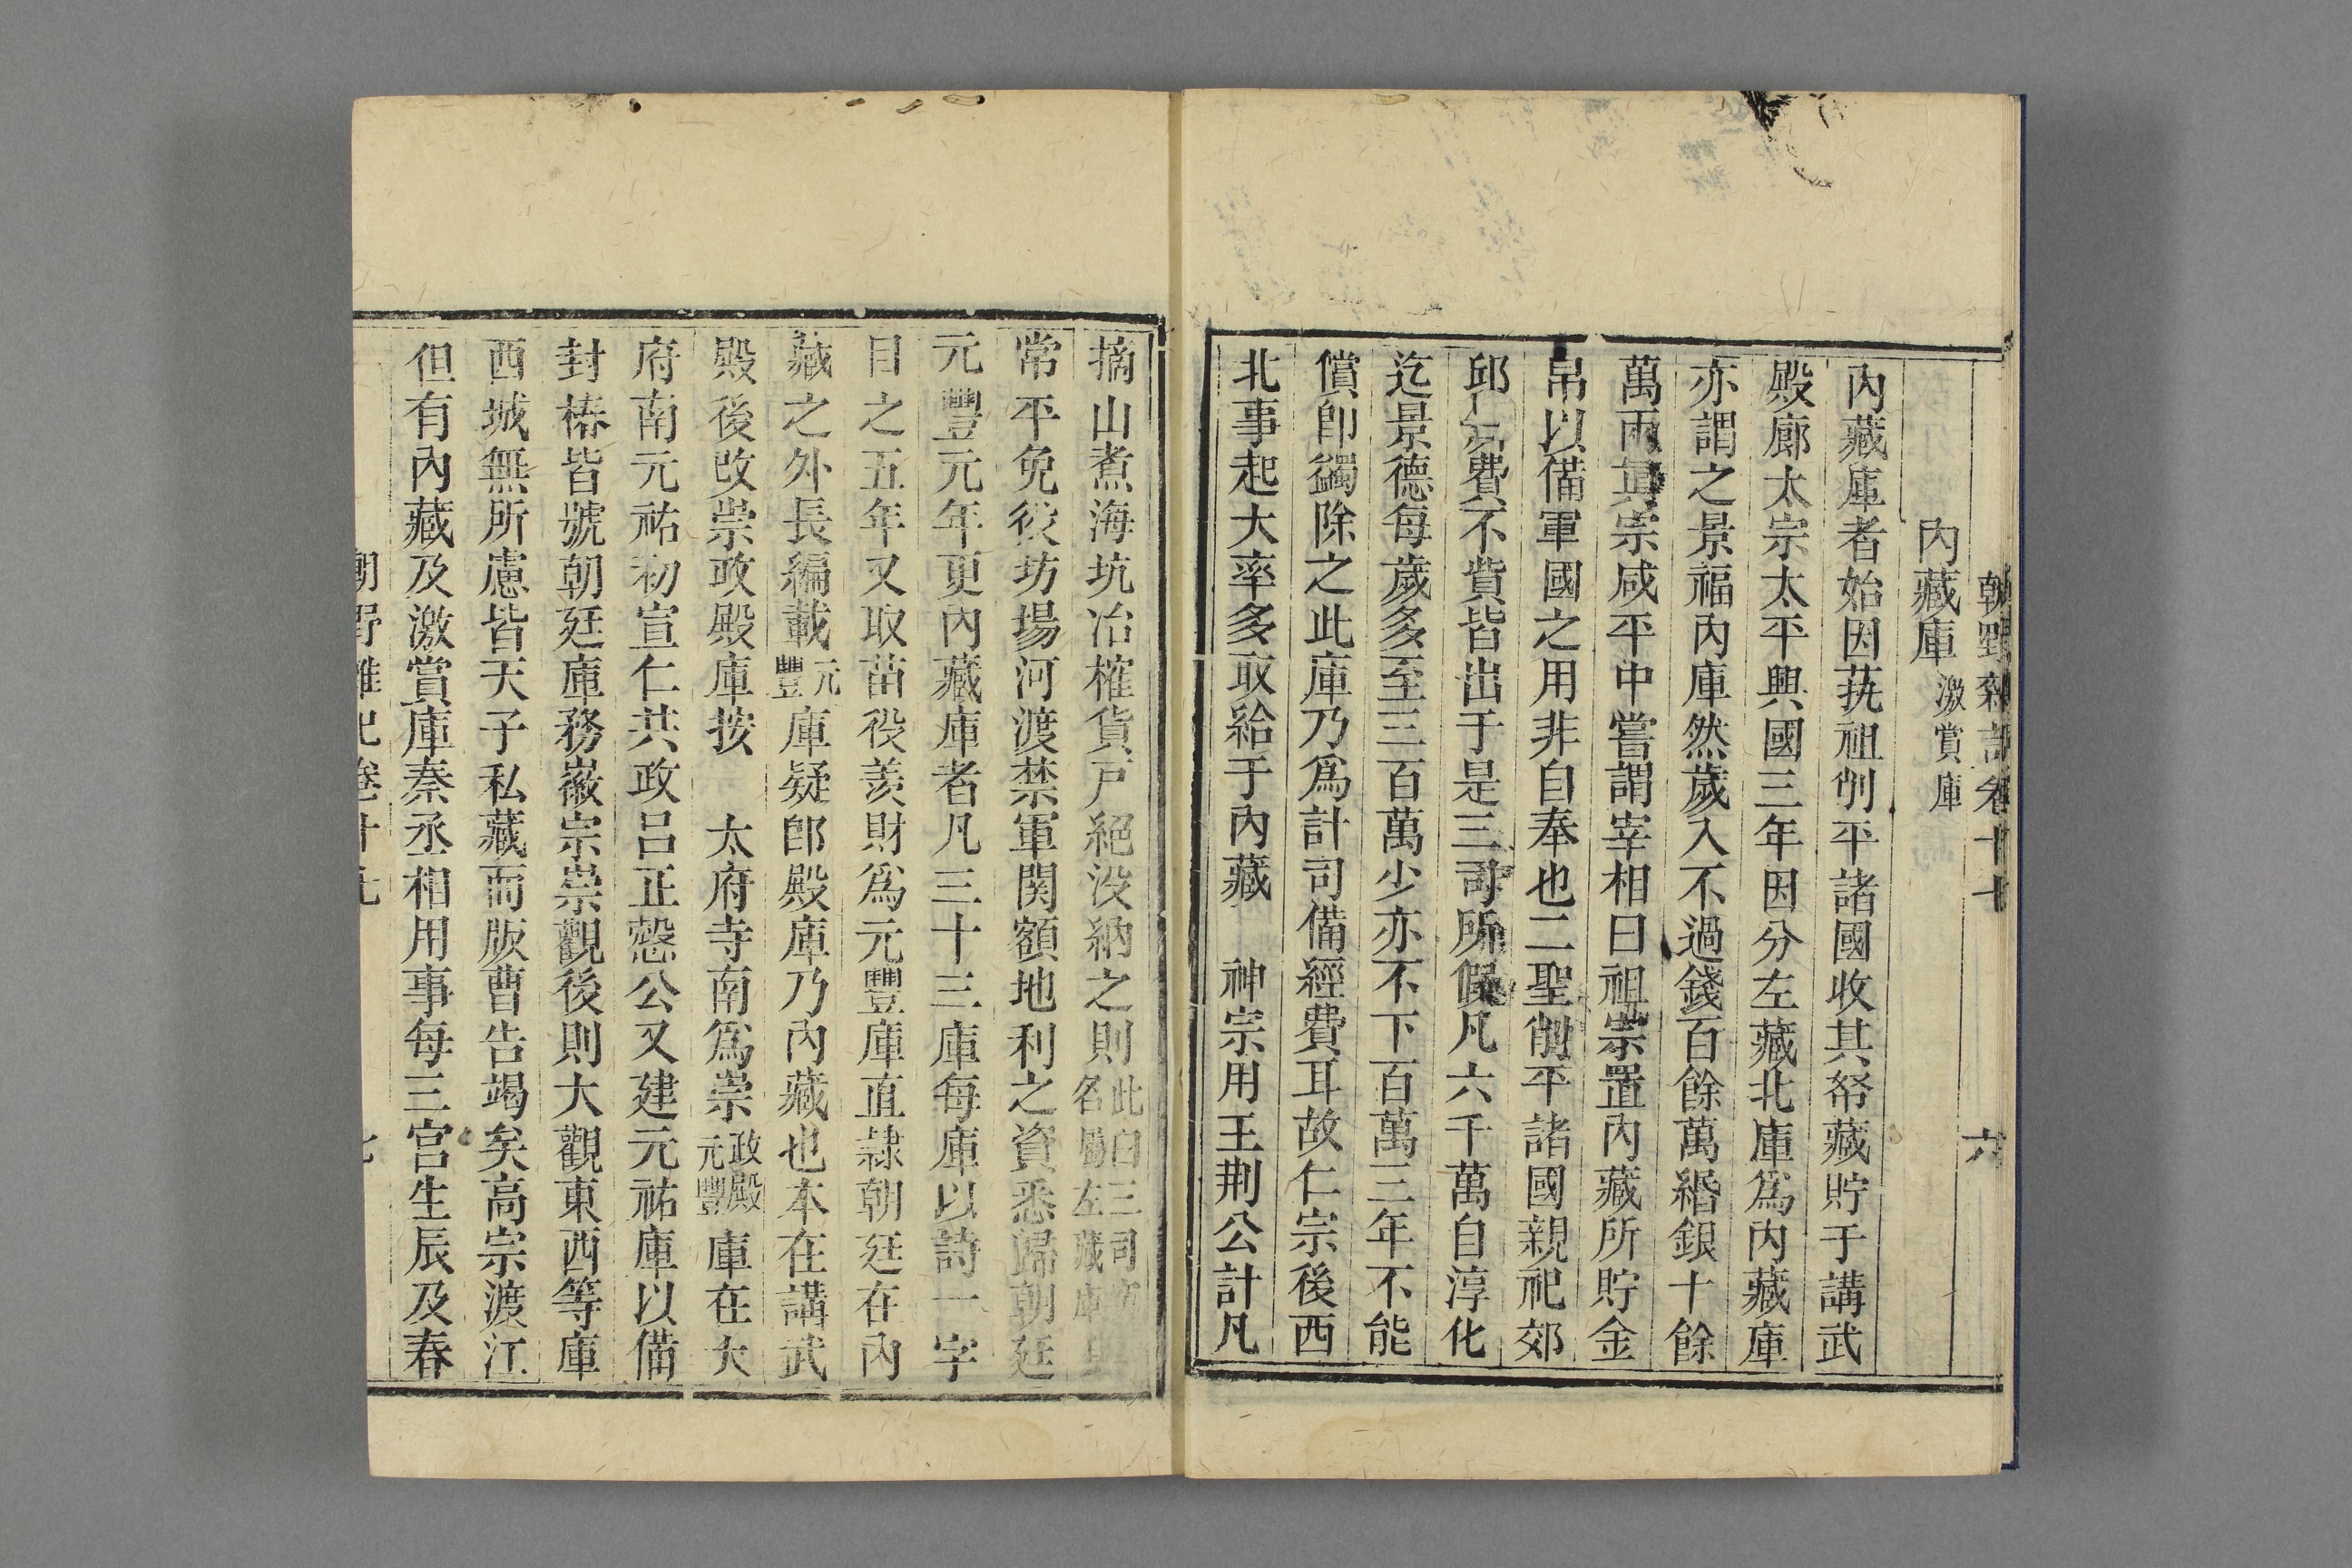 朝野雜記卷十七 六
內藏庫 激賞庫
內藏庫者始因萟祖削平諸國收其帑藏貯于講武
殿廊太宗太平興國三年因分左藏北庫爲內藏庫
亦謂之景福內庫然歲入不過錢百餘萬緡銀十餘
萬兩眞宗咸平中嘗謂宰相曰祖宗置內藏所貯金
帛以備軍國之用非自奉也二聖削平諸國親祀郊
邱 費不貲皆出于是三司所假凡六千萬自淳化
迄景德每歲多至三百萬少亦不下百萬三年不能
償卽蠲除之此庫乃爲計司備經費耳故仁宗後西
北事起大率多取給于內藏 神宗用王荆公計凡
摘山煮海坑冶榷貨戸絕没納之則此自三司 名屬左藏庫
常平免役坊場河渡禁軍関額地利之資悉歸朝廷
元豐元年更內藏庫者凡三十三庫每庫以詩一字
目之五年又取苗役羨財爲元豐庫直隷朝廷在內
藏之外長編載元豐庫疑卽殿庫乃內藏也本在講武
殿後改崇政殿庫按 太府寺南爲崇政殿元豐庫在大
府南元祐初宣仁共政吕正愍公又建元祐庫以備
封樁皆號朝廷庫務徽宗崇觀後則大觀東西等庫
西城無所慮皆天子私藏而版曹告竭矣高宗渡江
但有內藏及激賞庫秦丞相用事每三宫生辰及春
朝野雜記卷十七 七